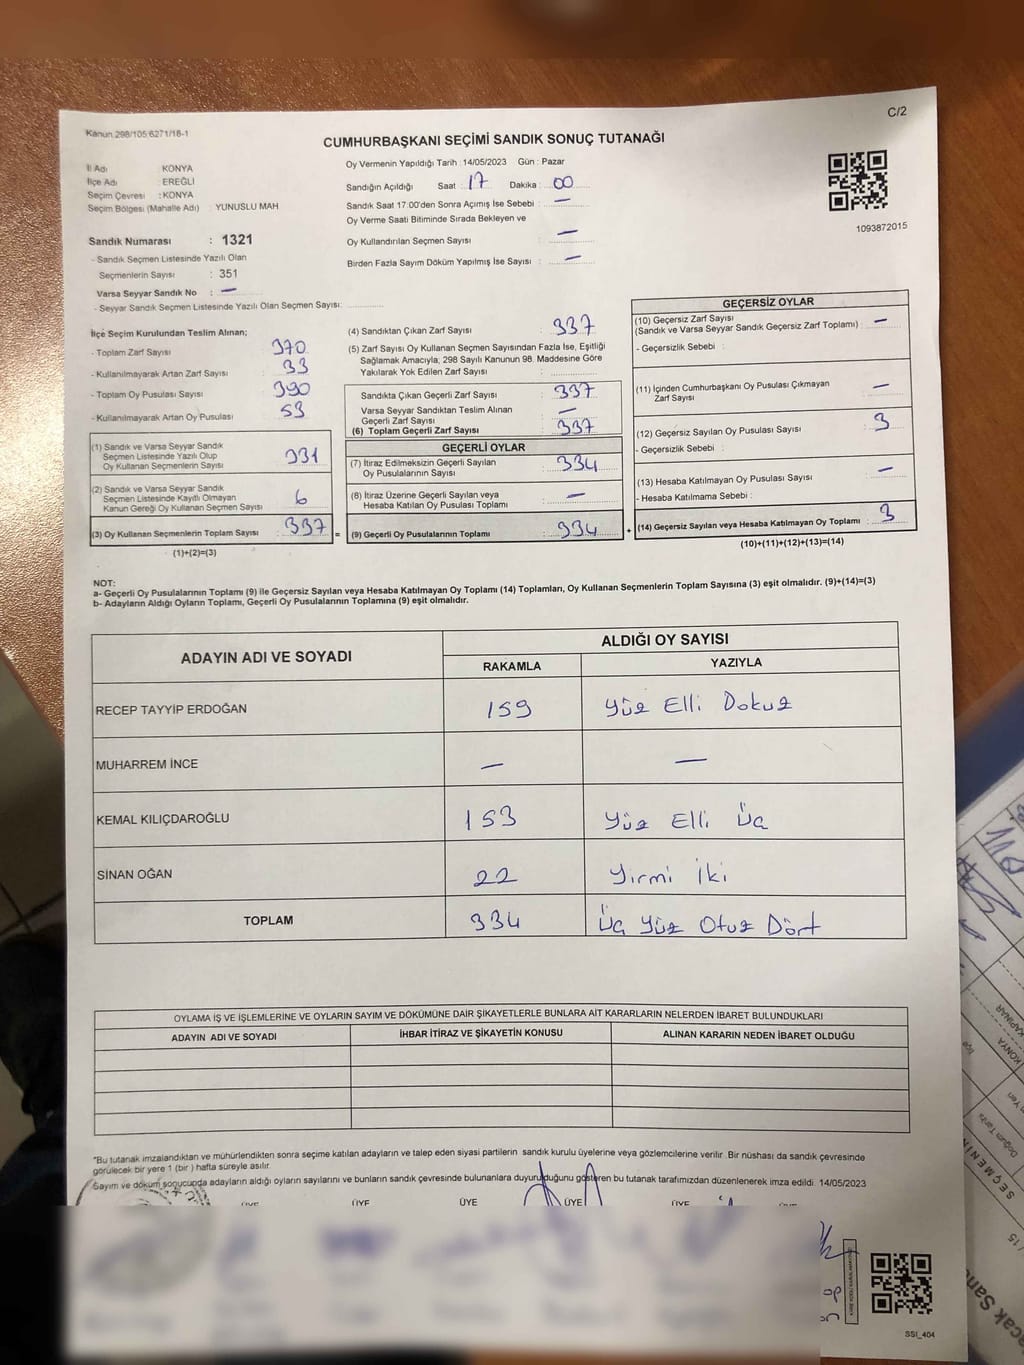 C/2
Kanun 298/105 6271/18-1
CUMHURBAŞKANI SEÇİMİ SANDIK SONUÇ TUTANAĞI
İl Adı : KONYA
İlçe Adı : EREĞLİ
Seçim Çevresi : KONYA
Seçim Bölgesi (Mahalle Adı) : YUNUSLU MAH
Sandık Numarası : 1321
- Sandık Seçmen Listesinde Yazılı Olan
Seçmenlerin Sayısı : 351
Varsa Seyyar Sandık No : —
- Seyyar Sandık Seçmen Listesinde Yazılı Olan Seçmen Sayısı:
Oy Vermenin Yapıldığı Tarih : 14/05/2023 Gün : Pazar
Sandığın Açıldığı Saat : 17 Dakika : 00
Sandık Saat 17:00'den Sonra Açımış İse Sebebi : —
Oy Verme Saati Bitiminde Sırada Bekleyen ve
Oy Kullandırılan Seçmen Sayısı : —
Birden Fazla Sayım Döküm Yapılmış İse Sayısı : —
1093872015
İlçe Seçim Kurulundan Teslim Alınan;
- Toplam Zarf Sayısı 370
- Kullanılmayarak Artan Zarf Sayısı 33
- Toplam Oy Pusulası Sayısı 390
- Kullanılmayarak Artan Oy Pusulası 53
(1) Sandık ve Varsa Seyyar Sandık
Seçmen Listesinde Yazılı Olup
Oy Kullanan Seçmenlerin Sayısı 331
(2) Sandık ve Varsa Seyyar Sandık
Seçmen Listesinde Kayıtlı Olmayan
Kanun Gereği Oy Kullanan Seçmen Sayısı 6
(3) Oy Kullanan Seçmenlerin Toplam Sayısı 337
(1)+(2)=(3)
(4) Sandıktan Çıkan Zarf Sayısı : 337
(5) Zarf Sayısı Oy Kullanan Seçmen Sayısından Fazla İse, Eşitliği
Sağlamak Amacıyla; 298 Sayılı Kanunun 98. Maddesine Göre
Yakılarak Yok Edilen Zarf Sayısı :
Sandıkta Çıkan Geçerli Zarf Sayısı : 337
Varsa Seyyar Sandıktan Teslim Alınan
Geçerli Zarf Sayısı : —
(6) Toplam Geçerli Zarf Sayısı : 337
GEÇERLİ OYLAR
(7) İtiraz Edilmeksizin Geçerli Sayılan
Oy Pusulalarının Sayısı : 334
(8) İtiraz Üzerine Geçerli Sayılan veya
Hesaba Katılan Oy Pusulası Toplamı : —
= (9) Geçerli Oy Pusulalarının Toplamı : 334
GEÇERSİZ OYLAR
(10) Geçersiz Zarf Sayısı
(Sandık ve Varsa Seyyar Sandık Geçersiz Zarf Toplamı) : —
- Geçersizlik Sebebi :
(11) İçinden Cumhurbaşkanı Oy Pusulası Çıkmayan
Zarf Sayısı : —
(12) Geçersiz Sayılan Oy Pusulası Sayısı : 3
- Geçersizlik Sebebi :
(13) Hesaba Katılmayan Oy Pusulası Sayısı : —
- Hesaba Katılmama Sebebi :
+ (14) Geçersiz Sayılan veya Hesaba Katılmayan Oy Toplamı : 3
(10)+(11)+(12)+(13)=(14)
NOT:
a- Geçerli Oy Pusulalarının Toplamı (9) ile Geçersiz Sayılan veya Hesaba Katılmayan Oy Toplamı (14) Toplamları, Oy Kullanan Seçmenlerin Toplam Sayısına (3) eşit olmalıdır. (9)+(14)=(3)
b- Adayların Aldığı Oyların Toplamı, Geçerli Oy Pusulalarının Toplamına (9) eşit olmalıdır.
ADAYIN ADI VE SOYADI ALDIĞI OY SAYISI
RAKAMLA YAZIYLA
RECEP TAYYİP ERDOĞAN 159 Yüz Elli Dokuz
MUHARREM İNCE — —
KEMAL KILIÇDAROĞLU 153 Yüz Elli Üç
SİNAN OĞAN 22 Yirmi İki
TOPLAM 334 Üç Yüz Otuz Dört
OYLAMA İŞ VE İŞLEMLERİNE VE OYLARIN SAYIM VE DÖKÜMÜNE DAİR ŞİKAYETLERLE BUNLARA AİT KARARLARIN NELERDEN İBARET BULUNDUKLARI
ADAYIN ADI VE SOYADI İHBAR İTİRAZ VE ŞİKAYETİN KONUSU ALINAN KARARIN NEDEN İBARET OLDUĞU
*Bu tutanak imzalandıktan ve mühürlendikten sonra seçime katılan adayların ve talep eden siyasi partilerin sandık kurulu üyelerine veya gözlemcilerine verilir. Bir nüshası da sandık çevresinde
görülecek bir yere 1 (bir) hafta süreyle asılır.
Sayım ve döküm sonucunda adayların aldığı oyların sayılarını ve bunların sandık çevresinde bulunanlara duyurulduğunu gösteren bu tutanak tarafımızdan düzenlenerek imza edildi. 14/05/2023
ÜYE ÜYE ÜYE ÜYE ÜYE ÜYE
SSI_404
KONYA
SEÇMENİN